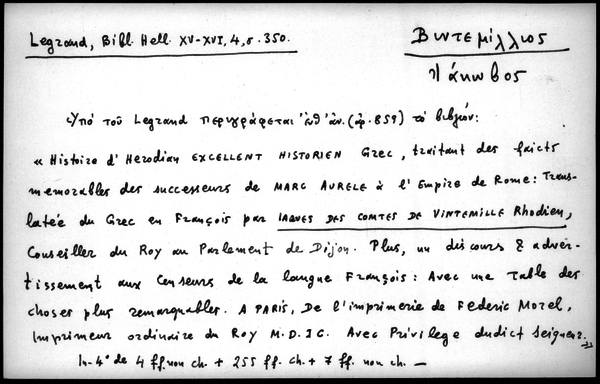 Legrand, Bibl. Hell. XV-XVI, 4, σ. 350.
Βιντεμίλλιος
Ἰάκωβος
Ὑπό τοῦ Legrand περιγράφεται (ἀρ. 859) τό βιβλίον:
« Histoire d' Herodian EXCELLENT HISTORIEN Grec, traitant des faicts
memorables des successeurs de MARC AURELE à l' Empire de Rome: Trans-
latée du Grec en François par IAQUES DES COMTES DE VINTEMILLE Rhodien,
Conseiller du Roy au Parlement de Dijon. Plus, un discours & adver-
tissement aux Censeurs de la langue François: Avec une Table des
choses plus remarquables. A PARIS, De l'imprimerie de Federic Morel,
Imprimeur ordinaire du Roy M.D.IC. Avec Privilege dudict seigneur.
In-4° de 4 ff. non ch. + 255 ff. ch. + 7 ff. non ch. —